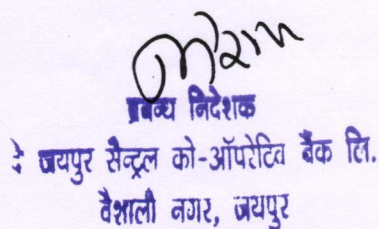 प्रबन्ध निदेशक
जयपुर सेन्ट्रल को-ऑपरेटिव बैंक लि.
वैशाली नगर, जयपुर